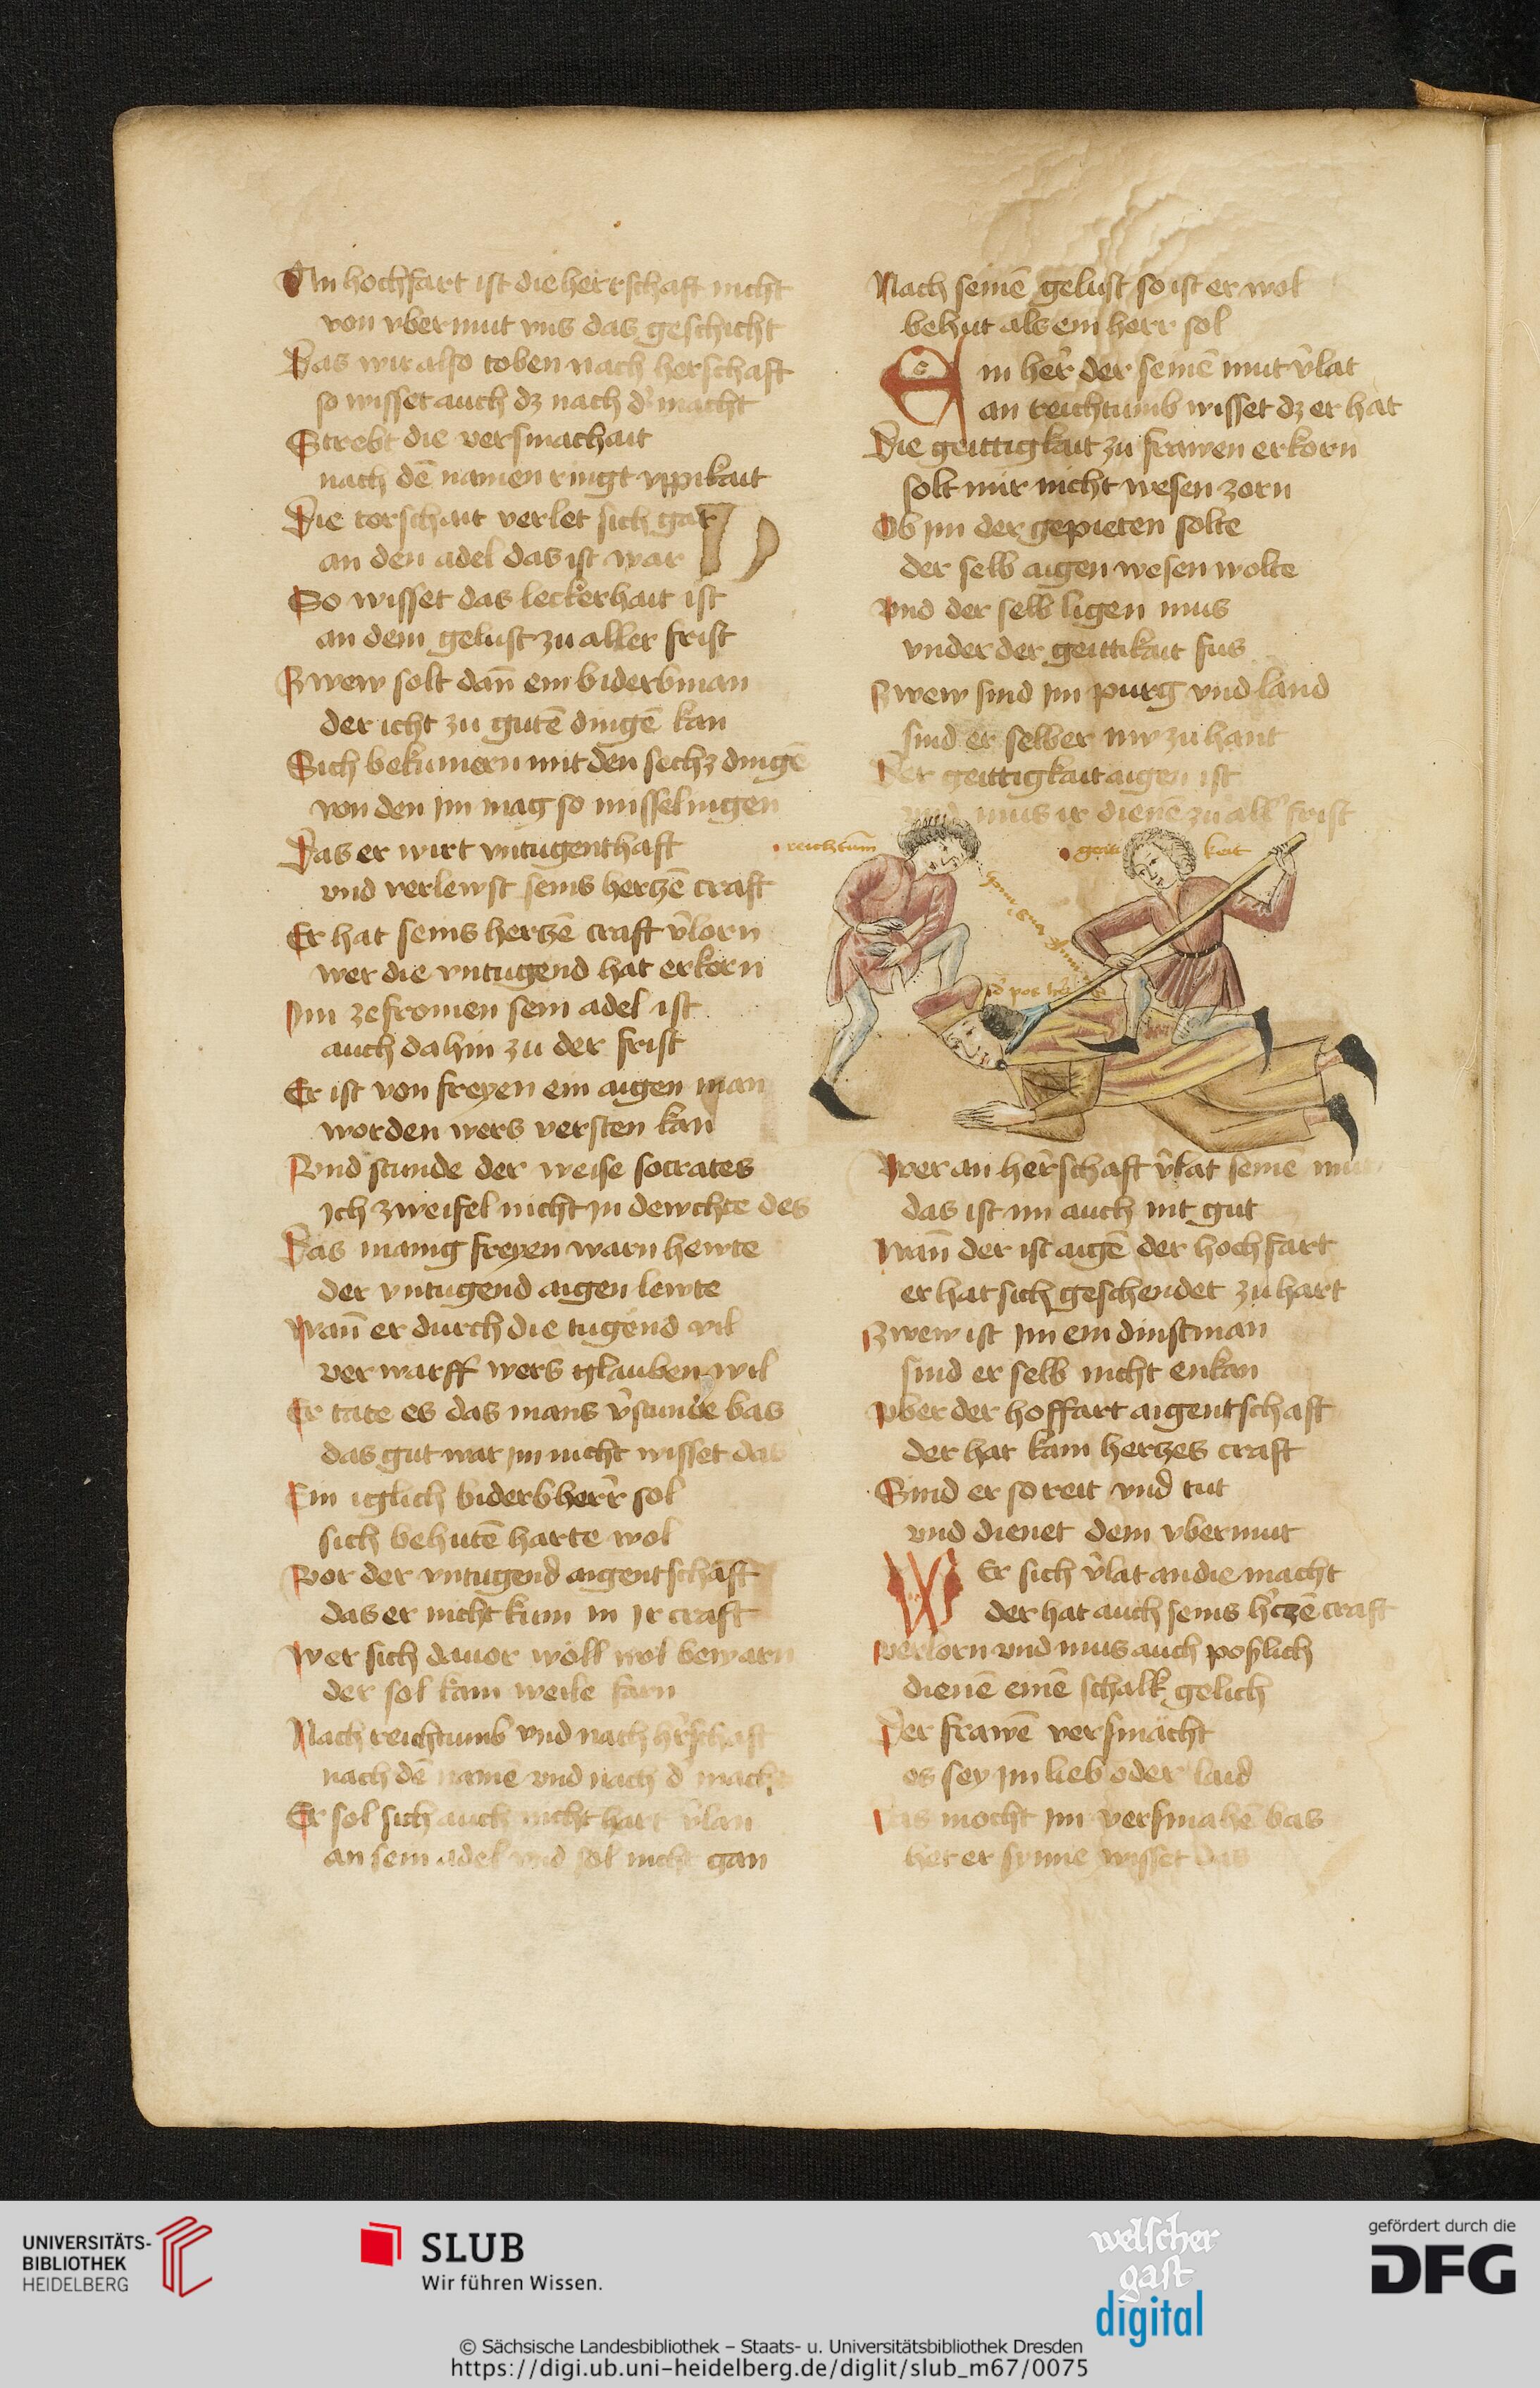 An hochfart ist die herrschaft nicht
von vbermut vns das geschicht
Das wir also toben nach herschaft
so wisset auch dz nach d' macht
Strebt die versmachait
nach dē namen ringt vppikait
Die torschait verlet sich gar
an den adel das ist war
So wisset das leckerhait ist
an dem gelust zu aller frist
Zwew solt dañ ein biderbman
der icht zu gutē dingē kan
Sich bekumern mit den sechz dingē
von den im mag so misselingen
Das er wirt vntugenthaft
vnd verlewst seins hertzē craft
Er hat seins hertzē craft v̂lorn
wer die vntugend hat erkorn
Im ze fromen sein adel ist
auch dahin zu der frist
Er ist von freyen ein aigen man
worden wers versten kan
Vnd stunde der weise socrates
Ich zweifel nicht in dewchte des
Das manig freyen warn hewte
der vntugend aigen lewte
Wañ er durch die tugend vil
verwarff wers glauben wil
Er tate es das mans v̂stunde bas
das gut war im nicht wisset das
Ein iglich biderb herr sol
sich behutē harte wol
Vor der vntugend aigentschaft
das er nicht kum in Ir craft
Wer sich dauor woll wol bewarn
der sol kain weile farn
Nach reichtumb vnd nach h'rschaft
nach dē namē vnd nach d' macht
Er sol sich auch nicht hart v̂lan
an sein adel vnd sol nicht gan
Nach seinē gelust so ist er wol
behut als ein herr sol
Ein her̂ der seinē mut v̂lat
an reichtumb wisset dz er hat
Die geittigkait zu frawen erkorn
solt mir nicht wesen zorn
Ob im der gepieten solte
der selb aigen wesen wolte
Vnd der selb ligen mus
vnder der geittikait fus
Zwew sind im purg vnd land
sind er selber nw zu hant
Der geittigkait aigen ist
vnd mus ir dienē zu all' frist
reichtum̄
geiti keit
Wer an her̂schaft v̂lat seinē mut
das ist im auch nit gut
Wañ der ist aigē der hochfart
er hat sich geschendet zu hart
Zwew ist im ein dinstman
sind er selb nicht enkan
Vber der hoffart aigentschaft
der hat kain hertzes craft
Sind er so reit vnd tut
vnd dienet dem vbermut
Wer sich v̂lat an die macht
der hat auch seins h'tzē craft
verlorn vnd mus auch poslich
dienē einē schalk gelich
Der frawē versmächt
es sey im lieb oder laid
Das mocht im versmahē bas
het er synne wisset das
UNIVERSITÄTS-
BIBLIOTHEK
HEIDELBERG
SLUB
Wir führen Wissen.
welscher
gast
digital
gefördert durch die
DFG
© Sächsische Landesbibliothek – Staats- u. Universitätsbibliothek Dresden
https://digi.ub.uni-heidelberg.de/diglit/slub_m67/0075